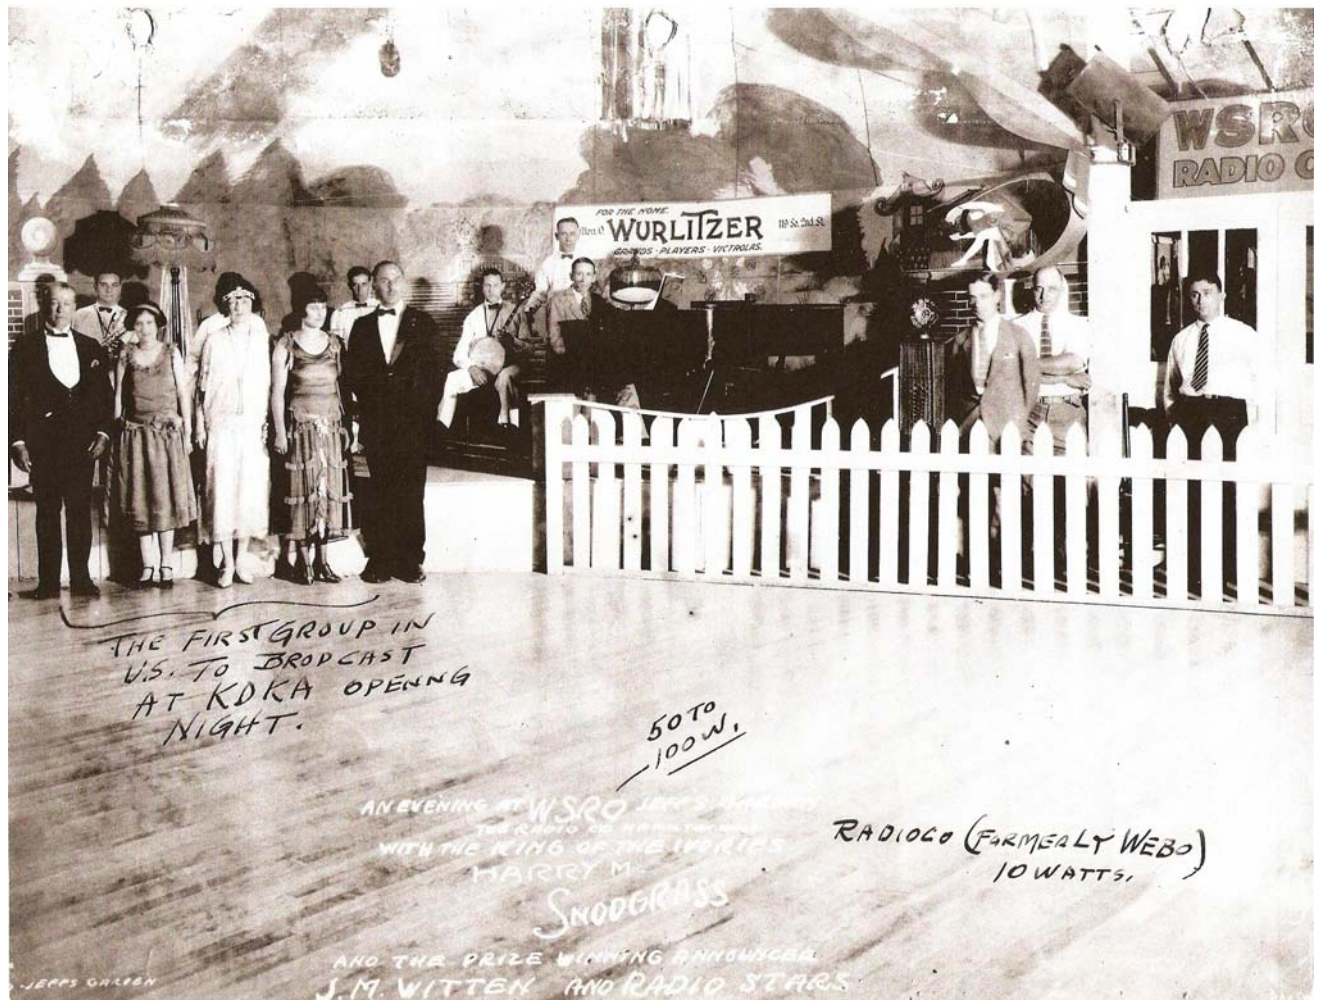 WSRO
RADIO C
FOR THE HOME.
WURLITZER
119 So. 2nd. St.
GRANDS - PLAYERS - VICTROLAS.
THE FIRST GROUP IN
U.S. TO BRODCAST
AT KDKA OPENNG
NIGHT.
50 TO
100 W.
AN EVENING AT WSRO JEFF'S GARDEN
THE RADIO CO HAMILTON
WITH THE KING OF THE IVORIES
HARRY M.
SNODGRASS
AND THE PRIZE WINNING ANNOUNCER
J.M. WITTEN AND RADIO STARS
RADIOCO (FORMERLY WEBO)
10 WATTS.
JEFFS GARDEN